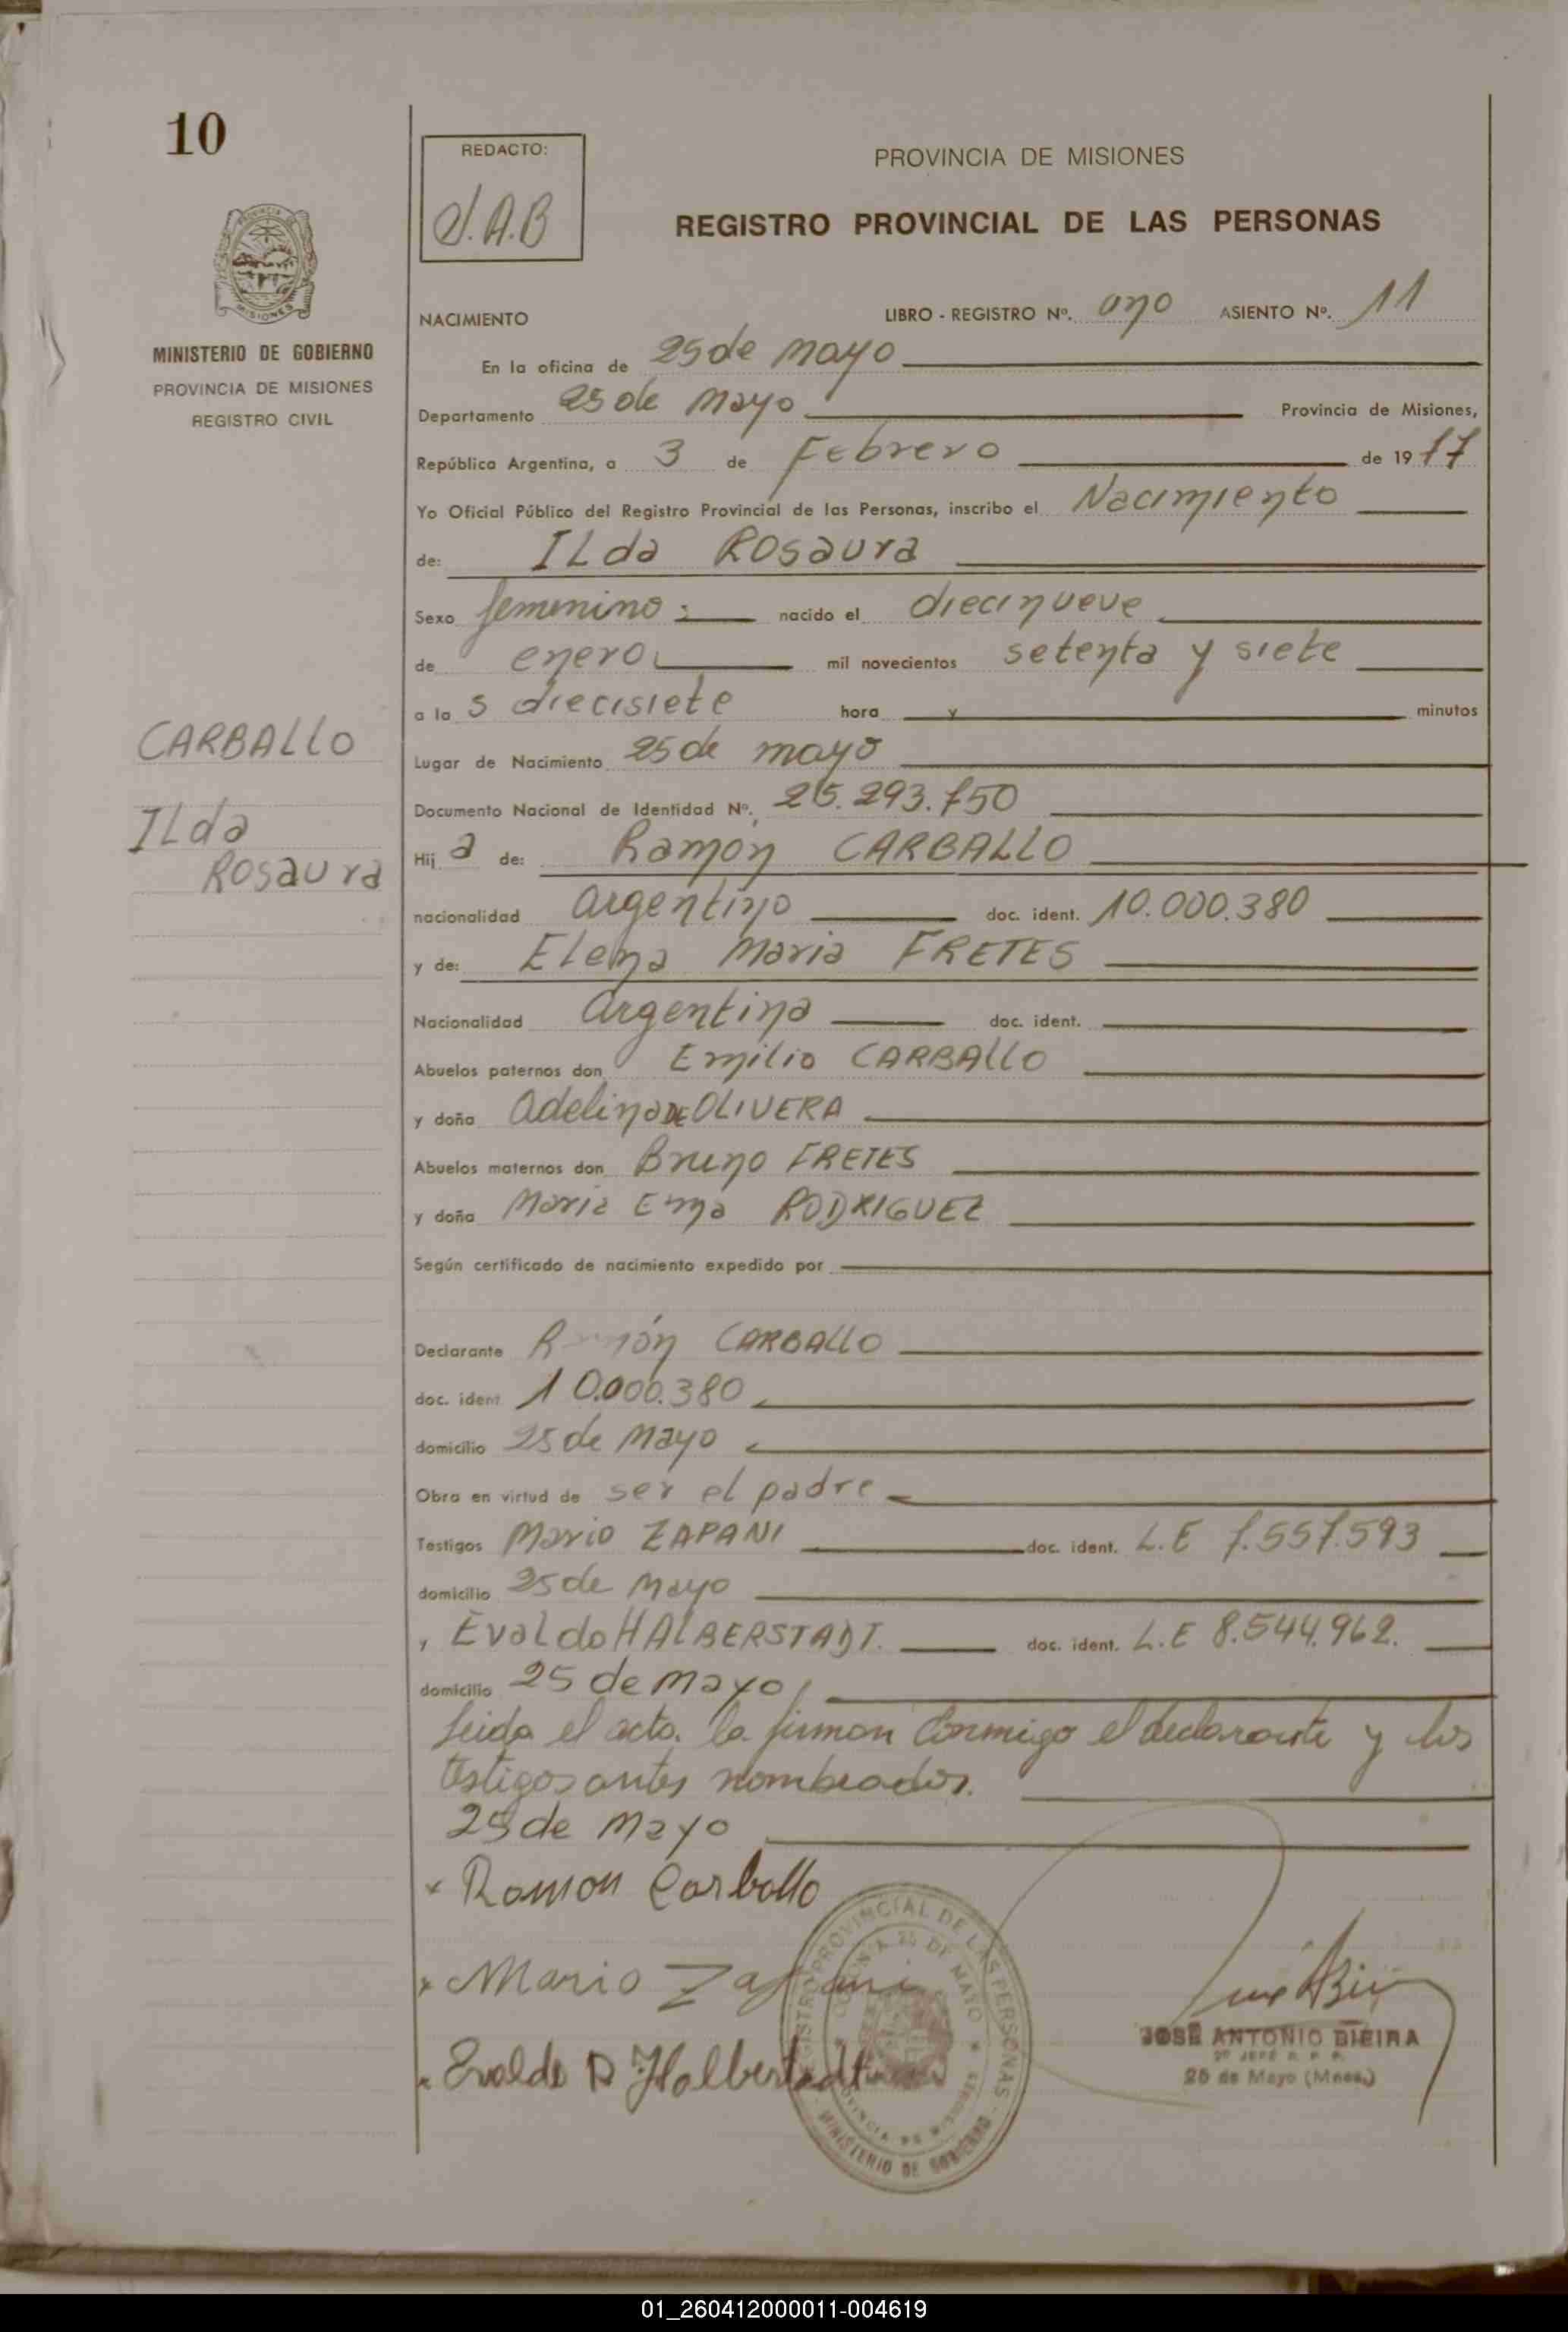 10
REDACTO:
J.A.B
PROVINCIA DE MISIONES
REGISTRO PROVINCIAL DE LAS PERSONAS
MINISTERIO DE GOBIERNO
PROVINCIA DE MISIONES
REGISTRO CIVIL
NACIMIENTO LIBRO - REGISTRO Nº. uno ASIENTO Nº. 11
En la oficina de 25 de mayo
Departamento 25 de Mayo Provincia de Misiones,
República Argentina, a 3 de Febrero de 1977
Yo Oficial Público del Registro Provincial de las Personas, inscribo el Nacimiento
de: ILda Rosaura
Sexo femenino: nacido el diecinueve
de enero mil novecientos setenta y siete
a la s diecisiete hora y minutos
CARBALLO
ILda
Rosaura
Lugar de Nacimiento 25 de mayo
Documento Nacional de Identidad Nº. 25.293.750
Hij a de: Ramón CARBALLO
nacionalidad argentino doc. ident. 10.000.380
y de: Elena Maria FRETES
Nacionalidad argentina doc. ident.
Abuelos paternos don Emilio CARBALLO
y doña Adelina DE OLIVERA
Abuelos maternos don Bruno FRETES
y doña Maria Ema RODRIGUEZ
Según certificado de nacimiento expedido por
Declarante Ramón CARBALLO
doc. ident 10.000.380
domicilio 25 de Mayo
Obra en virtud de ser el padre
Testigos Mario ZAPANI doc. ident. L.E 7.557.593
domicilio 25 de Mayo
, Evaldo HALBERSTADT. doc. ident. L.E 8.544.962.
domicilio 25 de Mayo
Leida el acta, la firman conmigo el declarante y los
testigos antes nombrados.
25 de Mayo
Ramon Carballo
Mario Zapani
Evaldo R Halberstadt
REGISTRO PROVINCIAL DE LAS PERSONAS
COLONIA 25 DE MAYO
PROVINCIA DE MISIONES
MINISTERIO DE GOBIERNO
JOSÉ ANTONIO BIEIRA
25 de Mayo (Mnes.)
01_260412000011-004619